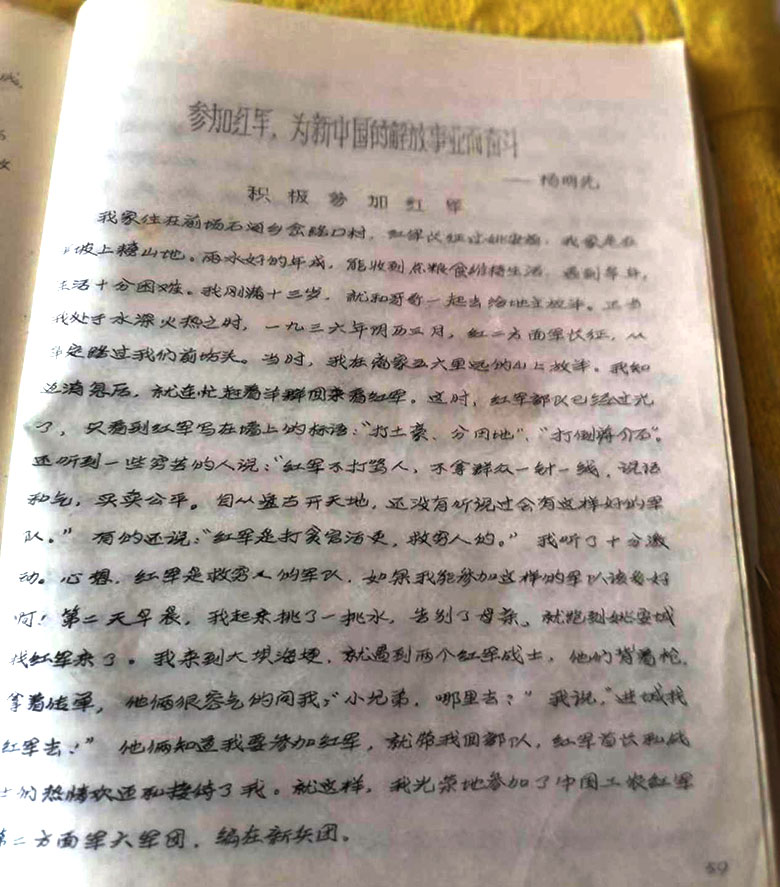 参加红军，为新中国的解放事业而奋斗
——杨明光
积极参加红军
我家住在前场石河乡岔路口村，红军长征过姚安前，我家是在
坡上种山地。雨水好的年成，能收到点粮食维持生活，遇到旱年，
生活十分困难。我刚满十三岁，就和哥哥一起去给地主放羊。正当
我处于水深火热之时，一九三六年阴历三月，红二方面军长征，从
定路过我们前场头。当时，我在离家五六里远的山上放羊。我知
道消息后，就连忙赶着羊群回来看红军。这时，红军部队已经过完
了，只看到红军写在墙上的标语：“打土豪、分田地”、“打倒蒋介石”。
还听到一些穷苦的人说：“红军不打骂人，不拿群众一针一线，说话
和气，买卖公平。自从盘古开天地，还没有听说过会有这样好的军
队。” 有的还说：“红军是打贪官污吏，救穷人的。” 我听了十分激
动。心想，红军是救穷人的军队，如果我能参加这样的军队该多好
啊！第二天早晨，我起来挑了一挑水，告别了母亲、就跑到姚安城
找红军来了。我来到大坝海埂，就遇到两个红军战士，他们背着枪，
拿着传单，他俩很客气的问我：“小兄弟，哪里去？” 我说，“进城找
红军去！” 他俩知道我要参加红军，就带我回部队，红军首长和战
士们热情欢迎和接待了我。就这样，我光荣地参加了中国工农红军
第二方面军六军团，编在新兵团。
59